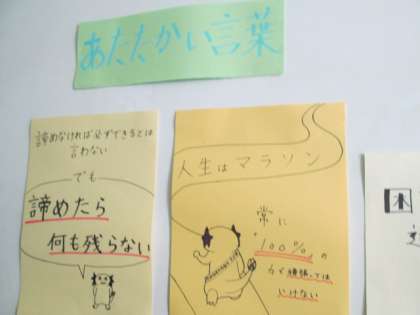 あたたかい言葉
諦めなければ必ずできるとは
言わない
でも
諦めたら
何も残らない
人生はマラソン
常に
100%の
力で頑張っては
いけない